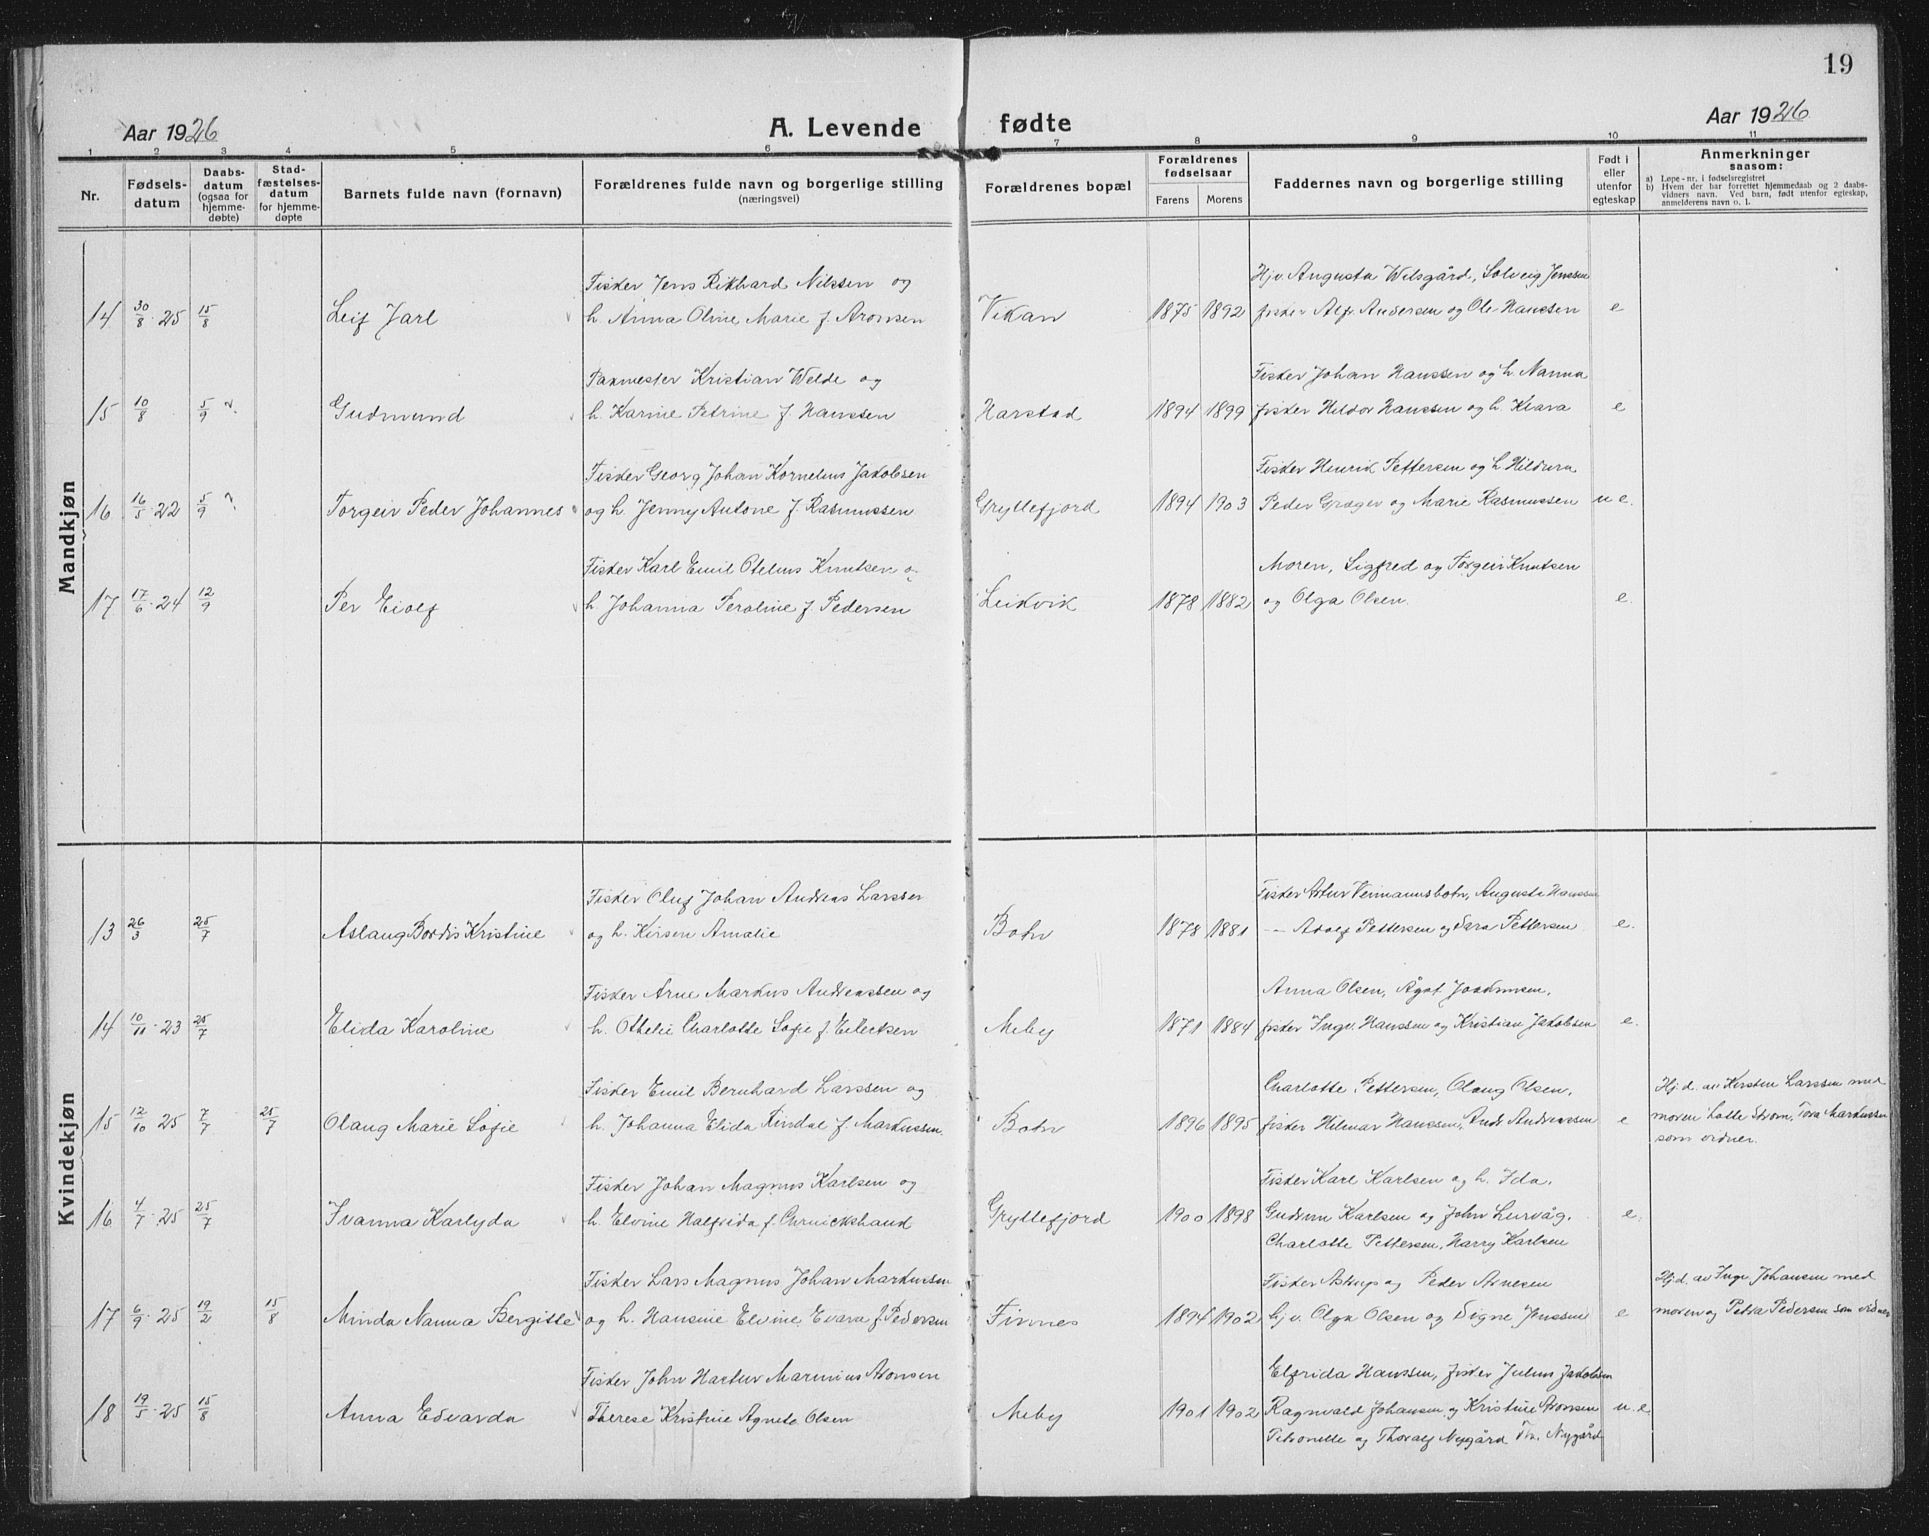 19
Aar 1926 A. Levende fødte Aar 1926
1 2 3 4 5 6 7 8 9 10 11
Nr. Fødsels-datum Daabs-datum (ogsaa for hjemme-døbte) Stad-fæstelses-datum for hjemme-døpte Barnets fulde navn (fornavn) Forældrenes fulde navn og borgerlige stilling (næringsvei) Forældrenes bopæl Forældrenes fødselsaar Farens Morens Faddernes navn og borgerlige stilling Født i eller utenfor egteskap Anmerkninger saasom:
a) Løpe-nr. i fødselsregistret
b) Hvem der har forrettet hjemmedaab og 2 daabs-
vidners navn. Ved barn, født utenfor egteskap,
anmelderens navn o. l.
Mandkjøn
Fisker Jens Rikhard Nilssen og Hjv. Augusta Wilsgård, Solveig Jenssen
14 30/8-25 15/8 Leif Jarl h. Anna Oline Marie f. Aronsen Vikan 1875 1892 fisker Alf. Andersen og Ole Hanssen e
Kristian Welde og Fisker Johan Hanssen og h. Nanna
15 10/8 5/9 Gudmund h. Karine Petrine f. Hanssen Harstad 1894 1899 fisker Hildor Hanssen og h. Klara e
Fisker Georg Johan Kornelius Jakobsen Fisker Henrik Pettersen og h. Hildura
16 16/5-22 5/9 Torgeir Peder Johannes og h. Jenny Antone f. Rasmussen Gryllefjord 1894 1903 Peder Græger og Marie Rasmussen u e.
Fisker Karl Emil Otelius Knutsen o. Moren, Sigfred og Torgeir Knutsen
17 17/6-24 12/9 Per Eiolf h. Johanna Peroline f. Pedersen Leikvik 1878 1882 og Olga Olsen. e.
Kvindekjøn
Fisker Oluf Johan Andreas Larssen Fisker Artur Vermannsbotn, Auguste Hanssen
13 26/3 25/7 Aslaug Bordis Kristine og h. Kirsen Amalie Botn 1878 1881 -- Adolf Pettersen og Sara Pettersen e.
Fisker Arne Markus Andreassen og Anna Olsen, Ågot Joakimsen,
14 10/11-23 25/7 Elida Karoline h. Othelie Charlotte Sofie f. Eilertsen Meby 1871 1884 fisker Ingv. Hanssen og Kristian Jakobsen e.
Fisker Emil Bernhard Larssen og Charlotte Pettersen, Olaug Olsen, Hj.d. av Kirsten Larssen med
15 12/10 25 7/7 25/7 Olaug Marie Sofie h. Johanna Elida Rindal f. Markussen. Botn 1896 1895 fisker Hilmar Hanssen, Andr. Andreassen e moren Lotte Strøm, Tora Markussen
som vidner.
Fisker Johan Magnus Karlsen og Fisker Karl Karlsen og h. Ida,
16 4/7-25 25/7 Ivanna Karlyda h. Elvine Halfrida f. Gryllefjord 1900 1898 Gudrun Karlsen og John Lervåg. e.
Charlotte Pettersen, Harry Karlsen
Fisker Lars Magnus Johan Markussen Fisker Astrup og Peder Arnesen Hj.d. av Inga Johansen med
17 6/9-25 19/2 15/8 Minda Nanna Bergitte og h. Hansine Elvine Evara f. Pedersen Finnes 1894 1902 hjv. Olga Olsen og Signe Jenssen e moren og Petra Pedersen som vidner
Fisker John Hartur Marinius Aronsen Elfrida Hanssen, fisker Julius Jakobsen
18 19/5-25 15/8 Anna Edvarda Therese Kristine Agnete Olsen Meby 1901 1902 Ragnvald Johansen og Kristine Aronsen u. e
Petronelle og Thoralf Nygård Th. Nygård